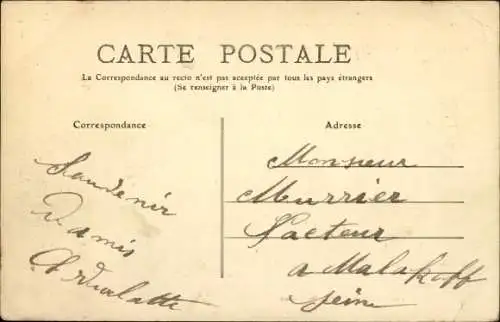 CARTE POSTALE
La Correspondance au recto n'est pas acceptée par tous les pays étrangers
(Se renseigner à la Poste)
Correspondance
Adresse
Souvenir
d'amis
Monsieur
Murrier
Facteur
a Malakoff
Seine